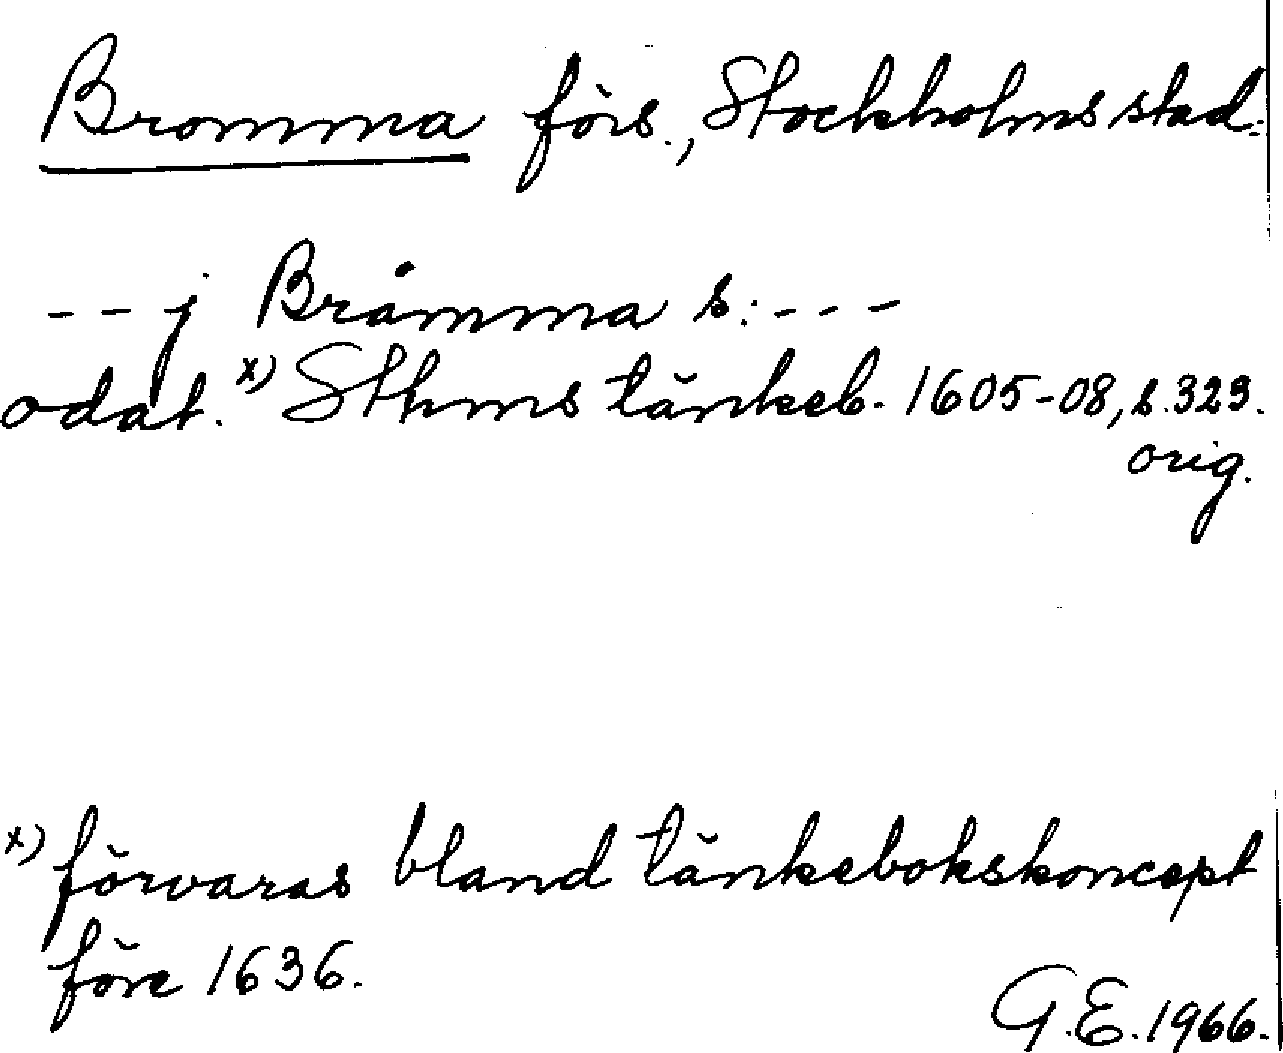 Bromma förs., Stockholms stad.
--- j Bråmma s: ---
odat. x) Sthms tänkeb. 1605-08, s. 323.
orig.
x) förvaras bland tänkebokskoncept
före 1636.
G.E. 1966.